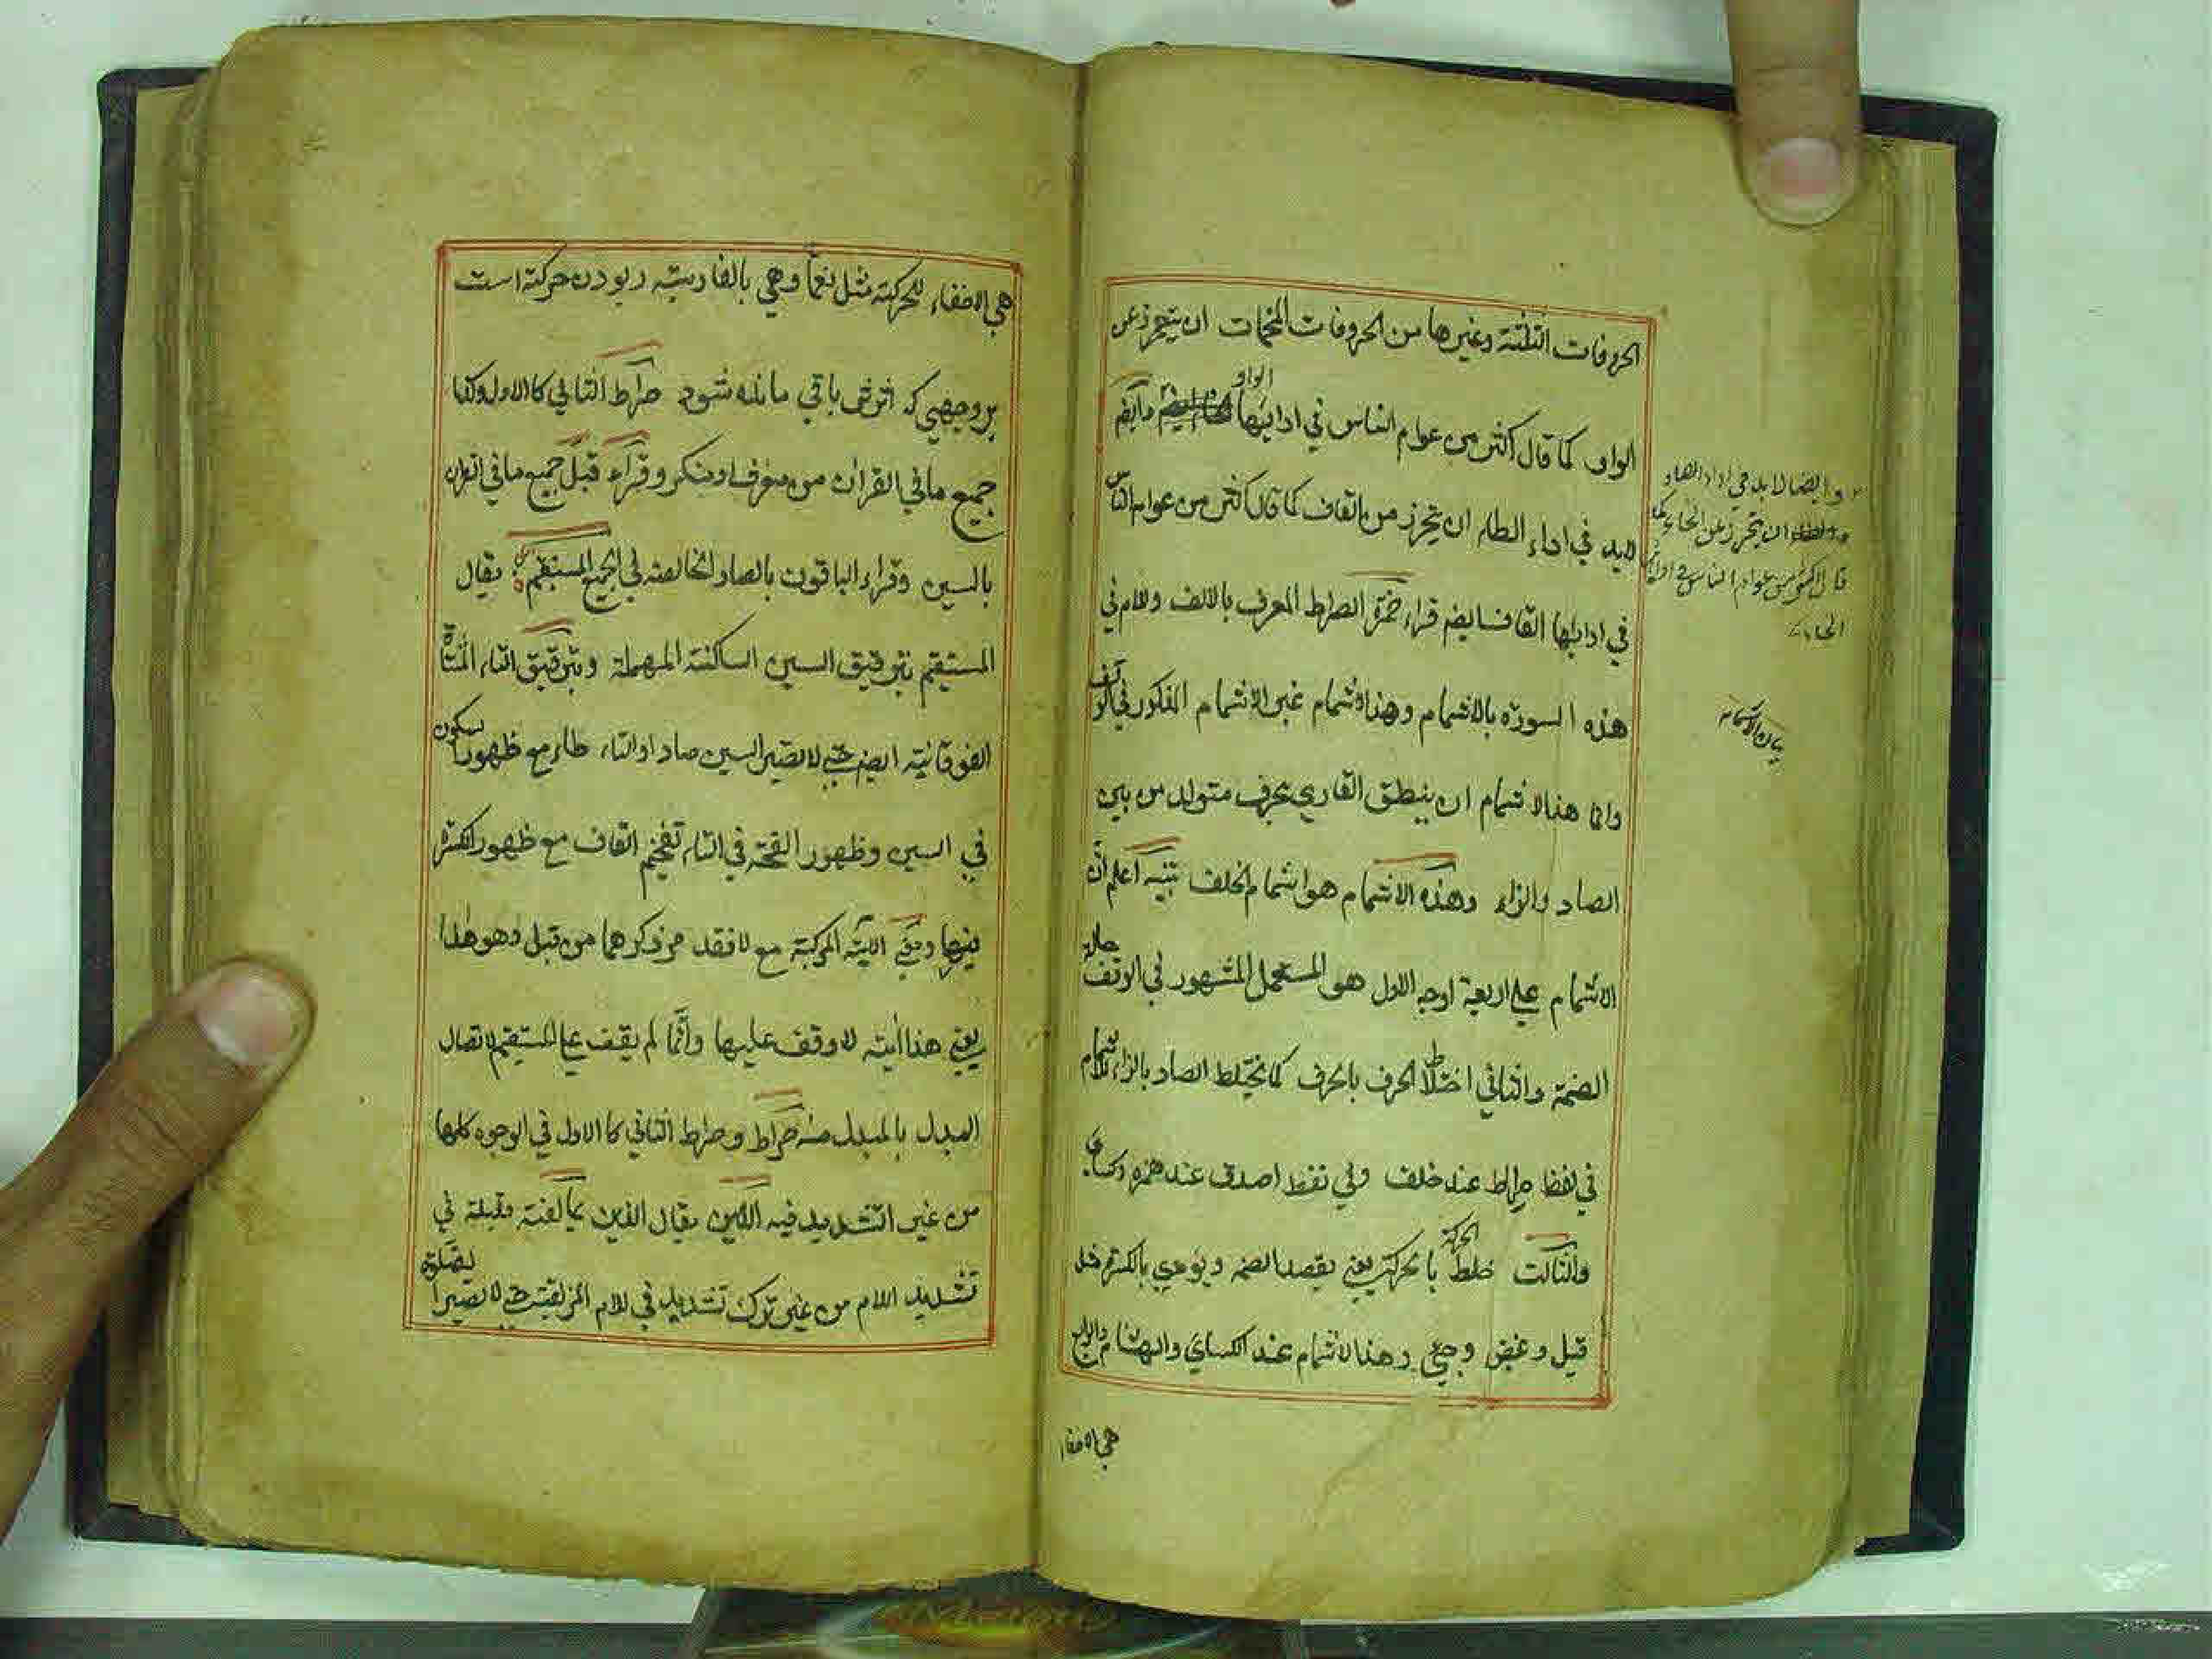 الحروفات الثلثة وغيرها من الحروفات المفخمات ان يتحرز عن
الواو كما قال اكثر من عوام الناس في ادائها الواو وايضم
لابد في اداء الطاء ان يتحرز من القاف كما قال اكثر من عوام الناس
في ادائها القاف ايضم قراء حمزة الصراط المعرف بالالف ولام في
هذه السورة بالاشمام وهذا الاشمام غير الاشمام المذكور في الوقف
وانما هذا الاشمام ان ينطق القاري بحرف متولد من بين
الصاد والزاء وهذه الاشمام هو اشمام لخلف تنبيه اعلم ان
الاشمام علي اربعة اوجه الاول هو المستعمل المشهور في الوقف حالة
الضمة والثاني اختلاط الحرف بالحرف كما يختلط الصاد بالزاء للاشمام
في لفظ صراط عند خلف وفي لفظ اصدق عند حمزه وكساي
والثالث خلط الحركة بالحركة يعني يقصد الضمه ويؤمي بالكسرة مثل
قيل وغيض وجيئ وهذا الاشمام عند الكساي والهشام والرابع
هي الاخفاء
وايضا لابد في اداء الضاد
ان يتحرز عن الخاء كما
قال اكثر من عوام الناس في ادائها
الخاء
بيان الاشمام
هي الاخفاء للحركته مثل نعما وهي بالفارسيته ربودن حركته است
بر وجهي كه اثرش باقي مانده شود صراط الثاني كالاول وكذا
جميع ما في القران من معرف او منكر وقراء قبل جميع ما في القران
بالسين وقراء الباقون بالصاد الخالصة في الجميع المستقيم يقال
المستقيم بترقيق السين الساكنة المهملة وبترقيق التاء المثناة
الفوقانية ايضم حتي لا تصير السين صاد او التاء طاء مع ظهور السكون
في السين وظهور الفتحة في التاء تفخيم القاف مع ظهور الكسرة
فيها وبقي الاية المركبة مع لا فقد مر ذكرهما من قبل وهو هذا
يعني هذا اية لا وقف عليها وانما لم يقف علي المستقيم لاتصال
المبدل بالمبدل منه صراط وصراط الثاني كالاول في الوجوه كلها
من غير التشديد فيه الذين يقال الذين
تشديد اللام من غير ترك تشديد في لام حتي لا تصير